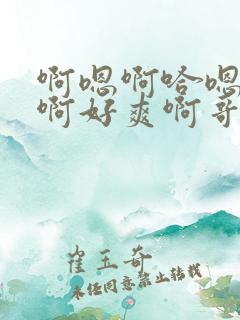 啊嗯啊哈嗯
啊好爽啊哥
崔玉奇
未经同意禁止转载